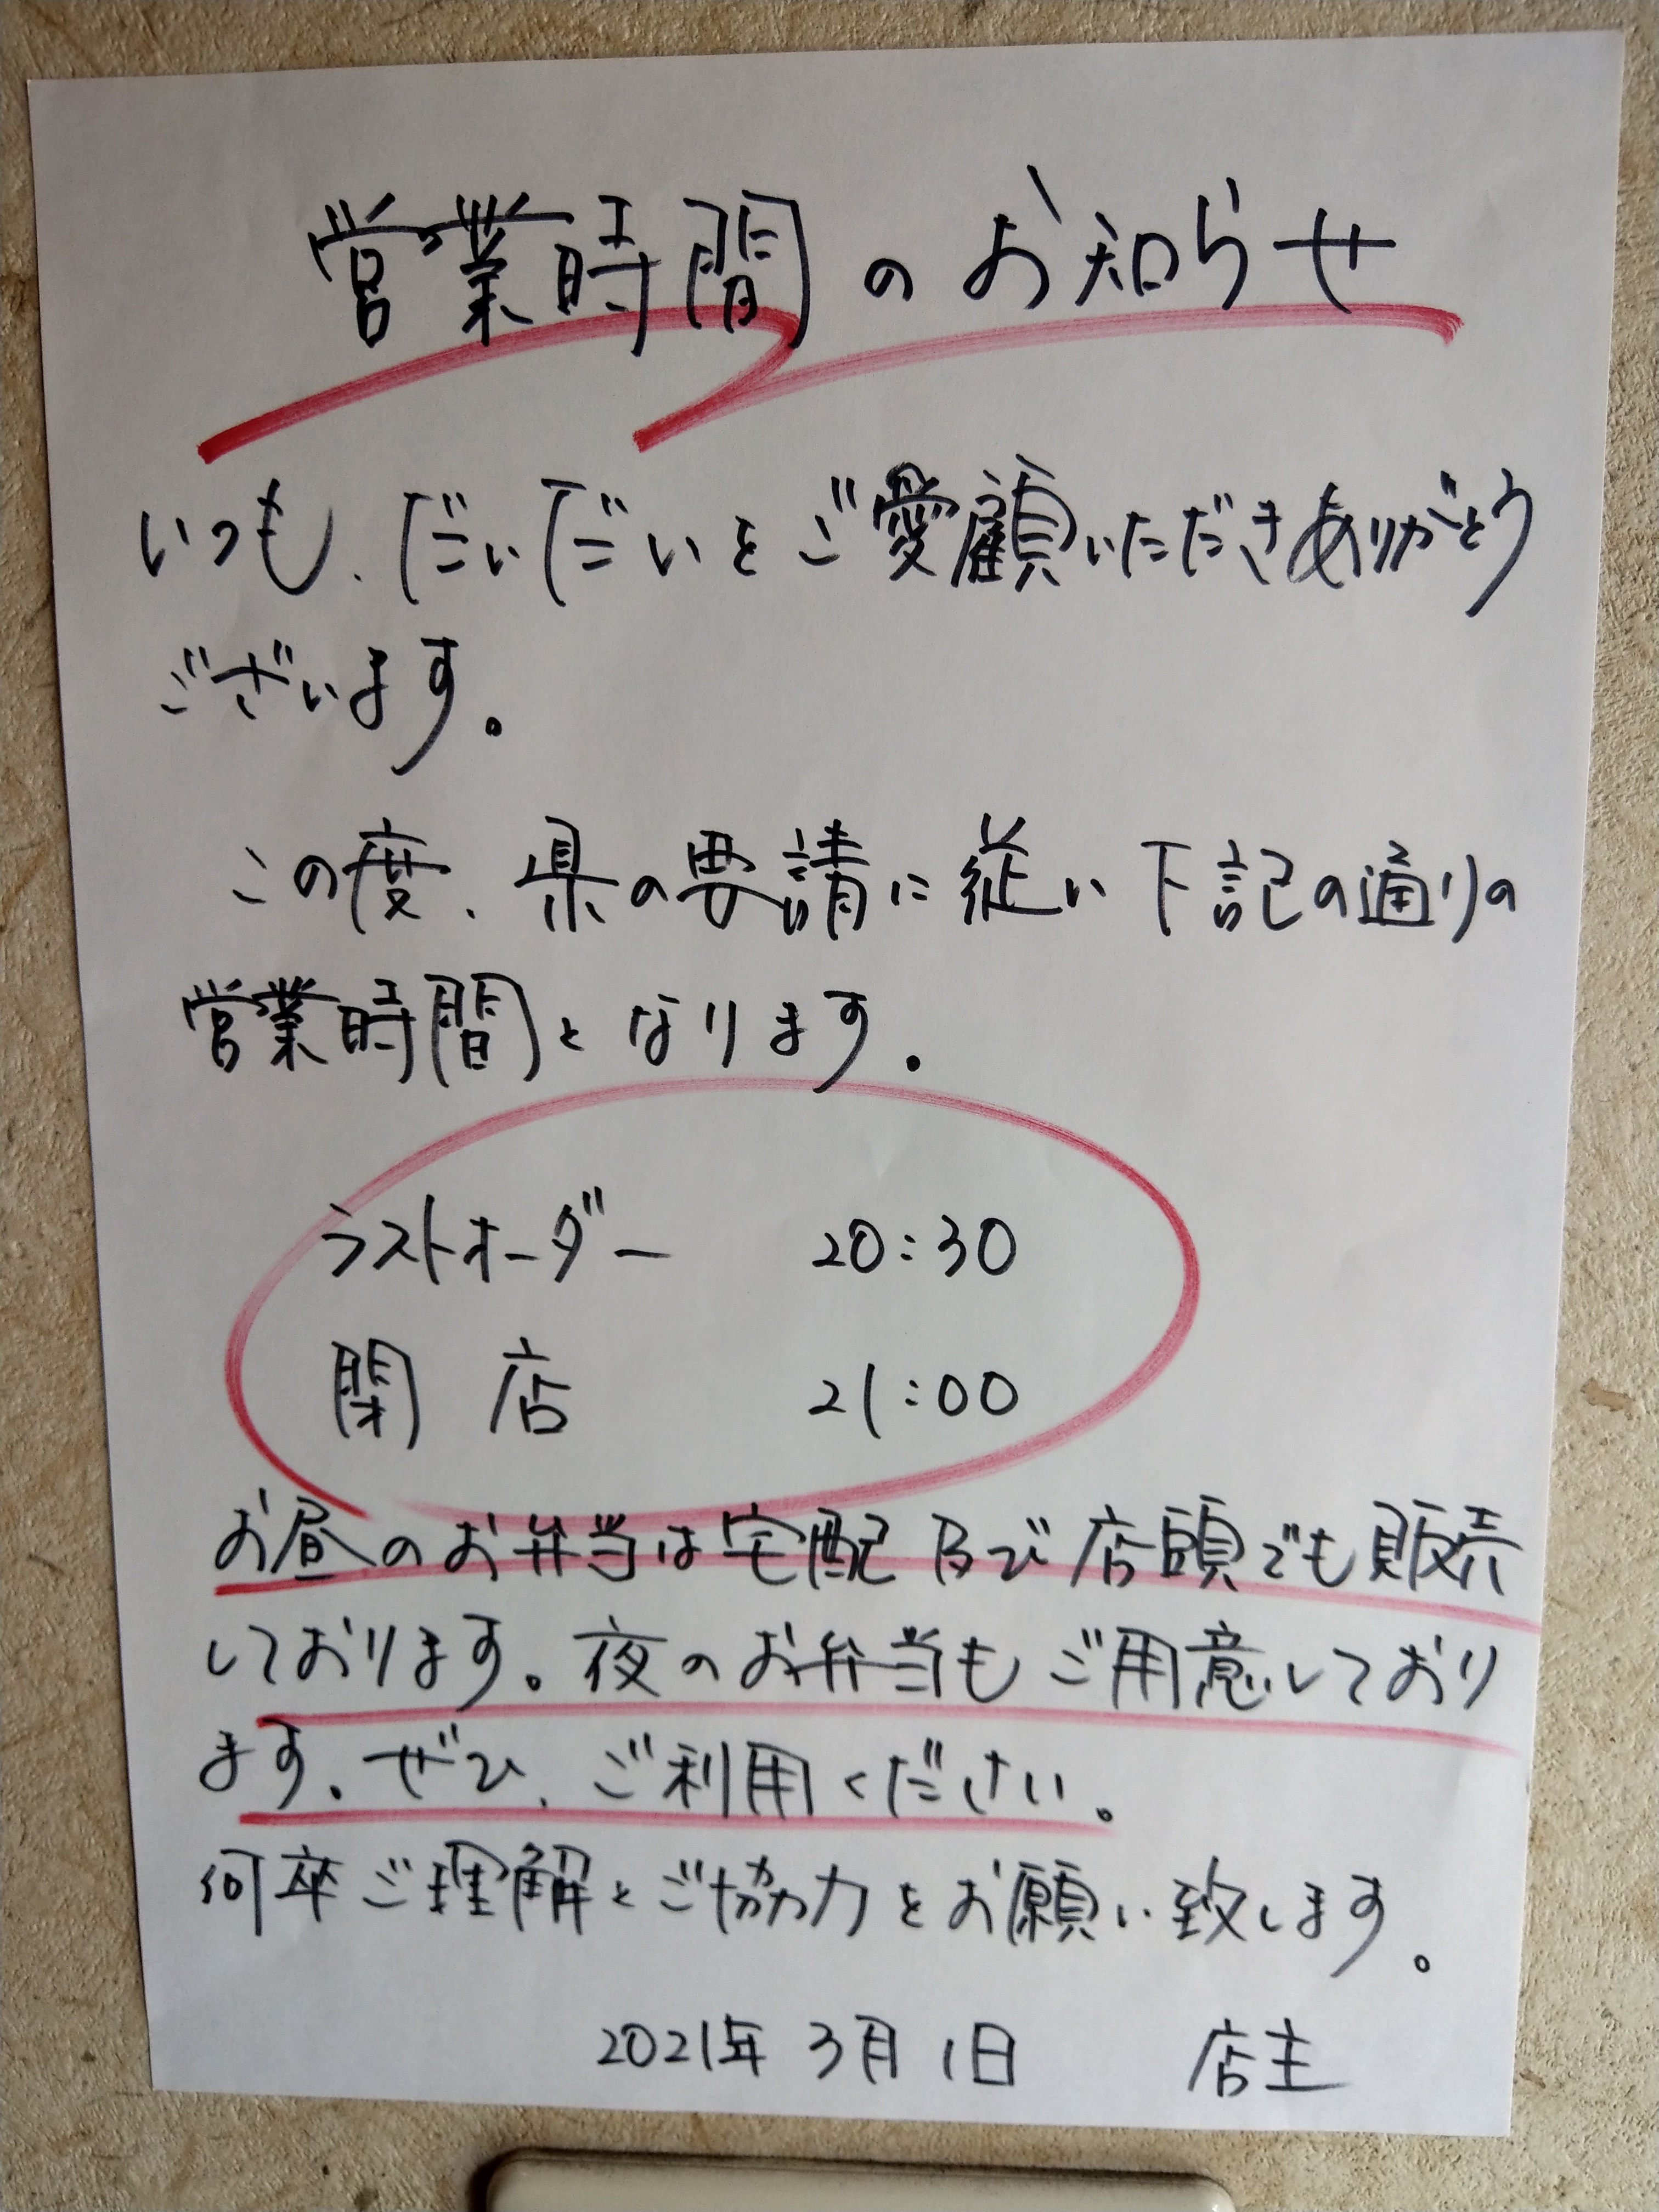 営業時間のお知らせ
いつも、だいだいをご愛顧いただきありがとう
ございます。
この度、県の要請に従い下記の通りの
営業時間となります。
ラストオーダー 20:30
閉店 21:00
お昼のお弁当は宅配及び店頭でも販売
しております。夜のお弁当もご用意しており
ます。ぜひ、ご利用ください。
何卒ご理解とご協力をお願い致します。
2021年3月1日 店主